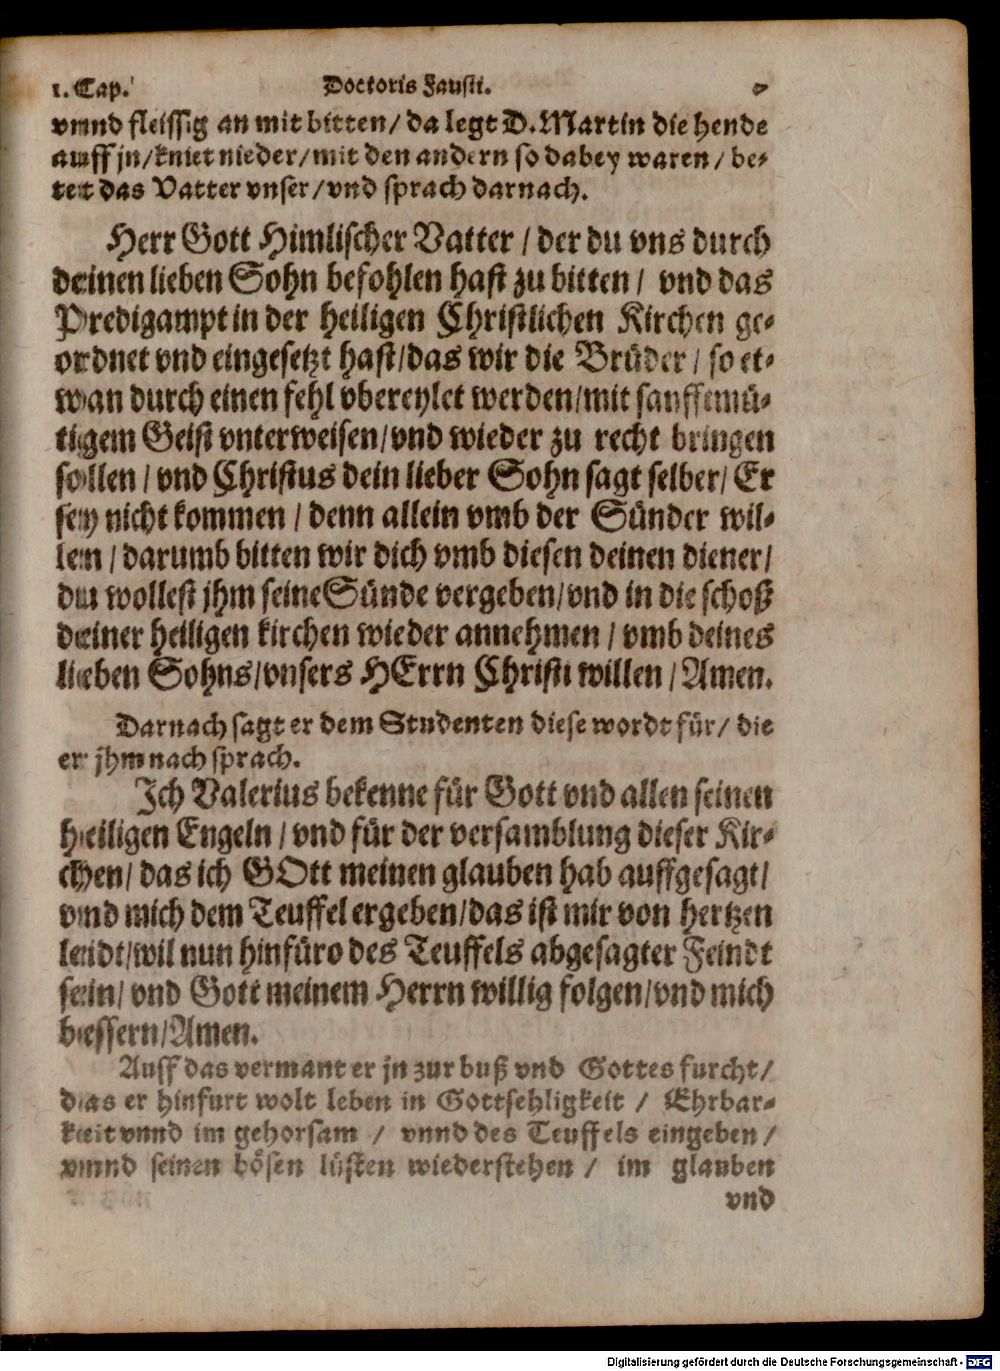 1. Cap. Doctoris Fausti. 7
vnnd fleissig an mit bitten/ da legt D. Martin die hende
auff jn/ kniet nieder/ mit den andern so dabey waren/ be-
tet das Vatter vnser/ vnd sprach darnach.
Herr Gott Himlischer Vatter/ der du vns durch
deinen lieben Sohn befohlen hast zu bitten/ vnd das
Predigampt in der heiligen Christlichen Kirchen ge-
ordnet vnd eingesetzt hast/ das wir die Brüder/ so et-
wan durch einen fehl vbereylet werden/ mit sanfftmü-
tigem Geist vnterweisen/ vnd wieder zu recht bringen
sollen/ vnd Christus dein lieber Sohn sagt selber/ Er
sey nicht kommen/ denn allein vmb der Sünder wil-
len/ darumb bitten wir dich vmb diesen deinen diener/
du wollest jhm seine Sünde vergeben/ vnd in die schoß
deiner heiligen kirchen wieder annehmen/ vmb deines
lieben Sohns/ vnsers HErrn Christi willen/ Amen.
Darnach sagt er dem Studenten diese wordt für/ die
er jhm nach sprach.
Ich Valerius bekenne für Gott vnd allen seinen
heiligen Engeln/ vnd für der versamblung dieser Kir-
chen/ das ich GOtt meinen glauben hab auffgesagt/
vnd mich dem Teuffel ergeben/ das ist mir von hertzen
leidt/ wil nun hinfüro des Teuffels abgesagter Feindt
sein/ vnd Gott meinem Herrn willig folgen/ vnd mich
bessern/ Amen.
Auff das vermant er jn zur buß vnd Gottes furcht/
das er hinfurt wolt leben in Gottsehligkeit/ Ehrbar-
keit vnnd im gehorsam/ vnnd des Teuffels eingeben/
vnnd seinen bösen lüsten wiederstehen/ im glauben
vnd
Digitalisierung gefördert durch die Deutsche Forschungsgemeinschaft - DFG